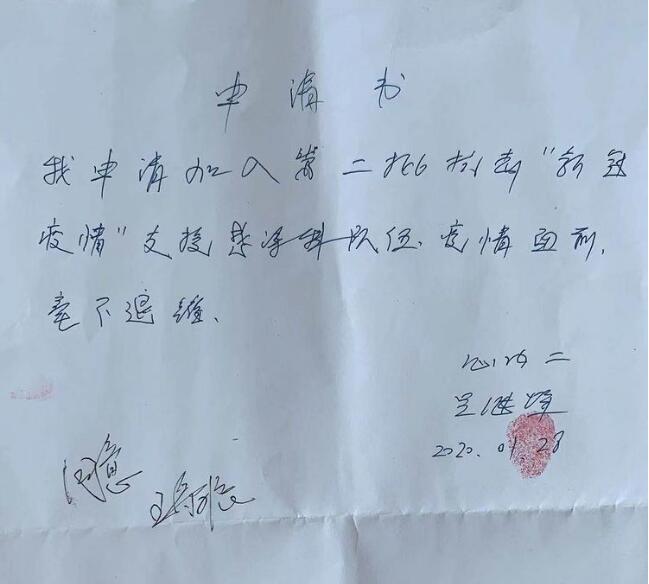 申请书
我申请加入第二批抗击“新冠
疫情”支援感染科队伍.疫情面前,
毫不退缩、
心内二
吴继雄
2020.01.28
同意